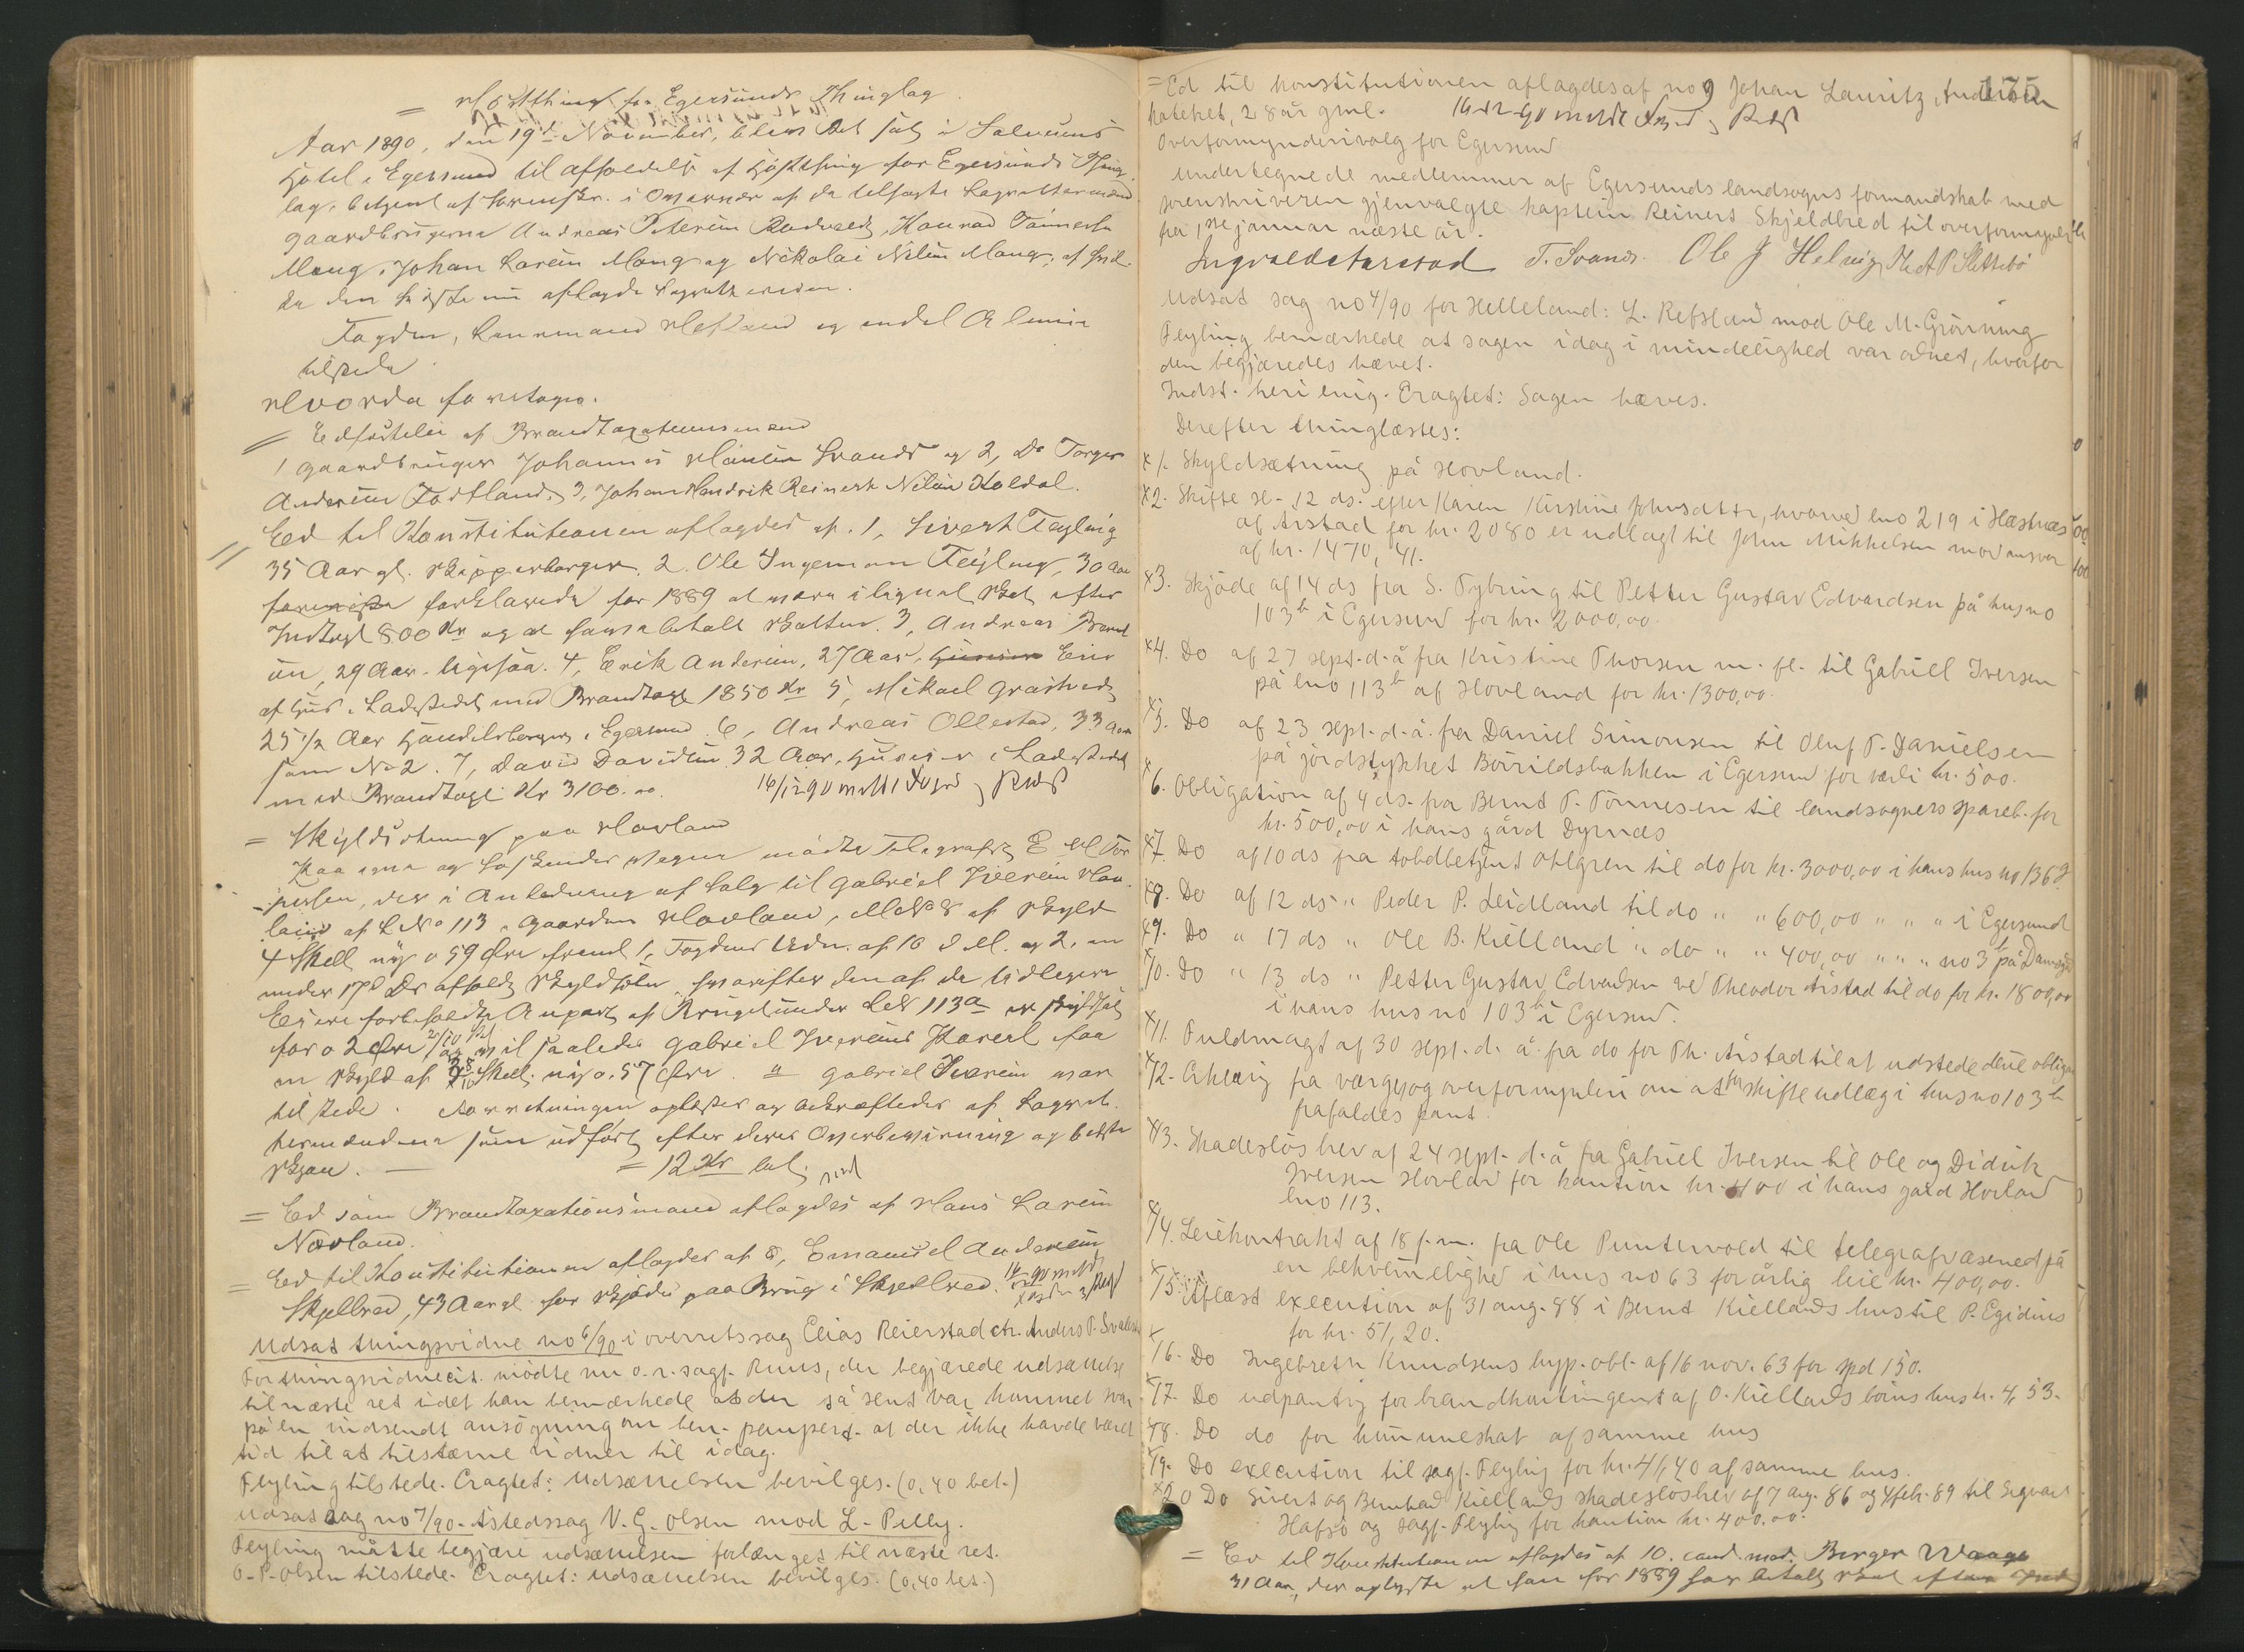 = Höstthing for Egersunds Thinglag
Aar 1890, den 19d November, blev Ret sat i Salvesens
Hotel i Egersund til Afholdelse af Höstthing for Egersunds Thing-
lag, betjent af Sorenskr. i Overvær af de tilsagte Lagrettesmænd
Gaardbrugerne Andreas Petersen Rodvelt, Konrad Tönnesen
Mong, Johan Larsen Mong og Nikolai Nilsen Mong, af hvil-
ke den sidste nu aflagde Lagretteseden.
Fogden, Lensmand Hetland og endel Almue
tilstede.
Hvorda foretoges.
= Edfæstelse af Brandtaxationsmænd
1 Gaardbruger Johannes Hansen Svands og 2, Do Torger
Andersen Todtland, 3, Johan Hendrik Reinert Nilsen Koldal.
= Eed til Konstitutionen aflagdes af. 1, Sivert Feyling
35 Aar gl. Skipperborger. 2. Ole Ingeman Feyling, 30 Aar
forklarede for 1889 at være ilignet Skat efter
Indtægt 800 Kr og at have betalt Skatten. 3, Andreas Bernt-
sen, 29 Aar. ligesaa. 4, Erik Andersen, 27 Aar, Eier
af Hus i Ladestedet med Brandtaxt 1850 Kr 5, Mikael Grastveit
25 1/2 Aar Handelsborger i Egersund. 6, Andreas Ollestad, 33 Aar
som No 2. 7, David Davidsen 32 Aar, Huseier i Ladestedet
med Brandtaxt Kr 3100.00. 16/12 90 meldt Foged
= Skyldsætning paa Hovland
Paa egne og Söskendes Vegne mödte Telegrafist E
der i Anledning af Salg til Gabriel Iversen Hov-
land af L No 113 Gaarden Hovland, af Skyld
4 Skill ny 0 59 Öre freml 1, Fogdens Udn. af 10 d M. og 2, en
under 17d Ds afholdt Skyldsætn. hvorefter den af de tidligere
Eiere forbeholdte Anpart af Bruget under LN 113a er skyldsat
for 0 2 Öre og vil saaledes Gabriel Iversens Parcel faa
en Skyld af Skill. ny 0.57 Öre. = Gabriel Iversen var
tilstede. Forretningen oplæstes og bekræftedes af Lagret-
temændene som udfört efter deres Overbevisning og bedste
Skjön. — = 12 Kr bet.
= Ed som Brandtaxationsmand aflagdes af Hans Larsen
Nævland.
= Eed til Konstitutionen aflagdes af 8, Emanuel Andersen
Skjelbred, 43 Aar gl for Skjöde paa Brug i Skjelbred.
Udsat thingsvidne no 6/90 i overretssag Elias Reierstad ctr. Anders P. Svalestad
For thingsvidnecit. mödte nu o.r.sagf. Ruus, der begjærede udsættelse
til næste ret idet han bemærkede at der så sent var kommet svar
på en indsendt ansögning om ben. pauperf. at der ikke havde været
tid til at tilstævne vidner til idag.
Feyling tilstede. Eragtet: Udsættelsen bevilges. (0,40 bet.)
Udsat sag no 7/90. Astedssag V. G. Olsen mod L. Pelly.
Feyling måtte begjære udsættelsen forlænget til næste ret.
O. P. Olsen tilstede. Eragtet: Udsættelsen bevilges. (0,40 bet.)
175
= Ed til konstitutionen aflagdes af no 9 Johan Lauritz Andersen
kateket, 28 år gml. 16-12-90 meldt Foged
Overformynderivalg for Egersund
Undertegnede medlemmer af Egersunds landsogns formandskab med
sorenskriveren gjenvalgte kaptein Reinert Skjeldbred til overformynder
fra 1ste januar næste år.
Ingvald Aarstad T. Svands. Ole J Helvig P Slettebö
Udsat sag no 4/90 for Helleland: L. Refsland mod Ole M. Grönning
Feyling bemærkede at sagen idag i mindelighed var ordnet, hvorfor
den begjæredes hævet.
Indst. heri enig. Eragtet: Sagen hæves.
Derefter thinglæstes:
x 1. Skyldsætning på Hovland.
x 2. Skifte sl. 12 ds. efter Karen Kirstine Johnsdatter, hvorved lno 219 i Hæstnæs
af Årstad for kr. 2080 er udlagt til John Mikkelsen mod ansvar
af kr. 1470,41.
x3. Skjöde af 14 ds fra S. Tybring til Petter Gustav Edvardsen på hus no
103b i Egersund for kr. 2000,00.
x4. Do af 27 sept. d. å fra Kristine Thorsen m. fl. til Gabriel Iversen
på lno 113b af Hovland for kr. 1300,00.
x5. Do af 23 sept. d. å. fra Daniel Simonsen til Oluf T. Danielsen
på jordstykket Böirildsbakken i Egersund for værdi kr. 500.
x6. Obligation af 4 ds. fra Bernt T. Tönnesen til landsognets spareb. for
kr. 500,00 i hans gård Dyrnæs
x7. Do af 10 ds fra toldbetjent Ohlgren til do for kr. 3000,00 i hans hus no 136
x8. Do af 12 ds " Peder P. Leidland til do " " 600,00 " " " i Egersund
x9. Do " 17 ds " Ole B. Kielland " do " " 400,00 " " " no 3b på
x10. Do " 13 ds " Petter Gustav Edvardsen ved Theodor Årstad til do for kr. 1800,00
i hans hus no 103b i Egersund.
x11. Fuldmagt af 30 sept. d. å. fra do for Th. Årstad til at udstede denne obligation
x12. Erklæring fra værge og overformynderi om at for skifteudlæg i hus no 103b
frafaldes pant.
x13. Skadeslösbrev af 24 sept. d. å fra Gabriel Iversen til Ole og Didrik
Iversen Hovland for kaution kr. 400 i hans gård Hovland
lno 113.
x14. Leiekontrakt af 18 f. m. fra Ole Puntervold til telegrafvæsenet på
en bekvemmelighed i hus no 63 for årlig leie kr. 400,00.
x15. Aflæst execution af 31 aug. 88 i Bernt Kiellands hus til P. Egidius
for kr. 51,20.
x 16. Do Ingebreth Knudsens hyp. obl. af 16 nov. 63 for spd 150.
x17. Do udpantning for brandkontingent af O. Kiellands boins hus kr. 4,53.
x18. Do do for kommuneskat af samme hus
x19. Do execution til sagf. Feyling for kr. 41,40 af samme hus.
x20 Do Sivert og Bernhard Kiellands skadeslösbrev af 7 aug. 86 og 4 febr. 89 til Sigvart
Hafsö og sagf. Feyling for kaution kr. 400.00.
= Ed til Konstitutionen aflagdes af 10. cand. med. Birger Waage
31 Aar, der oplyste at han for 1889 har betalt Skat efter